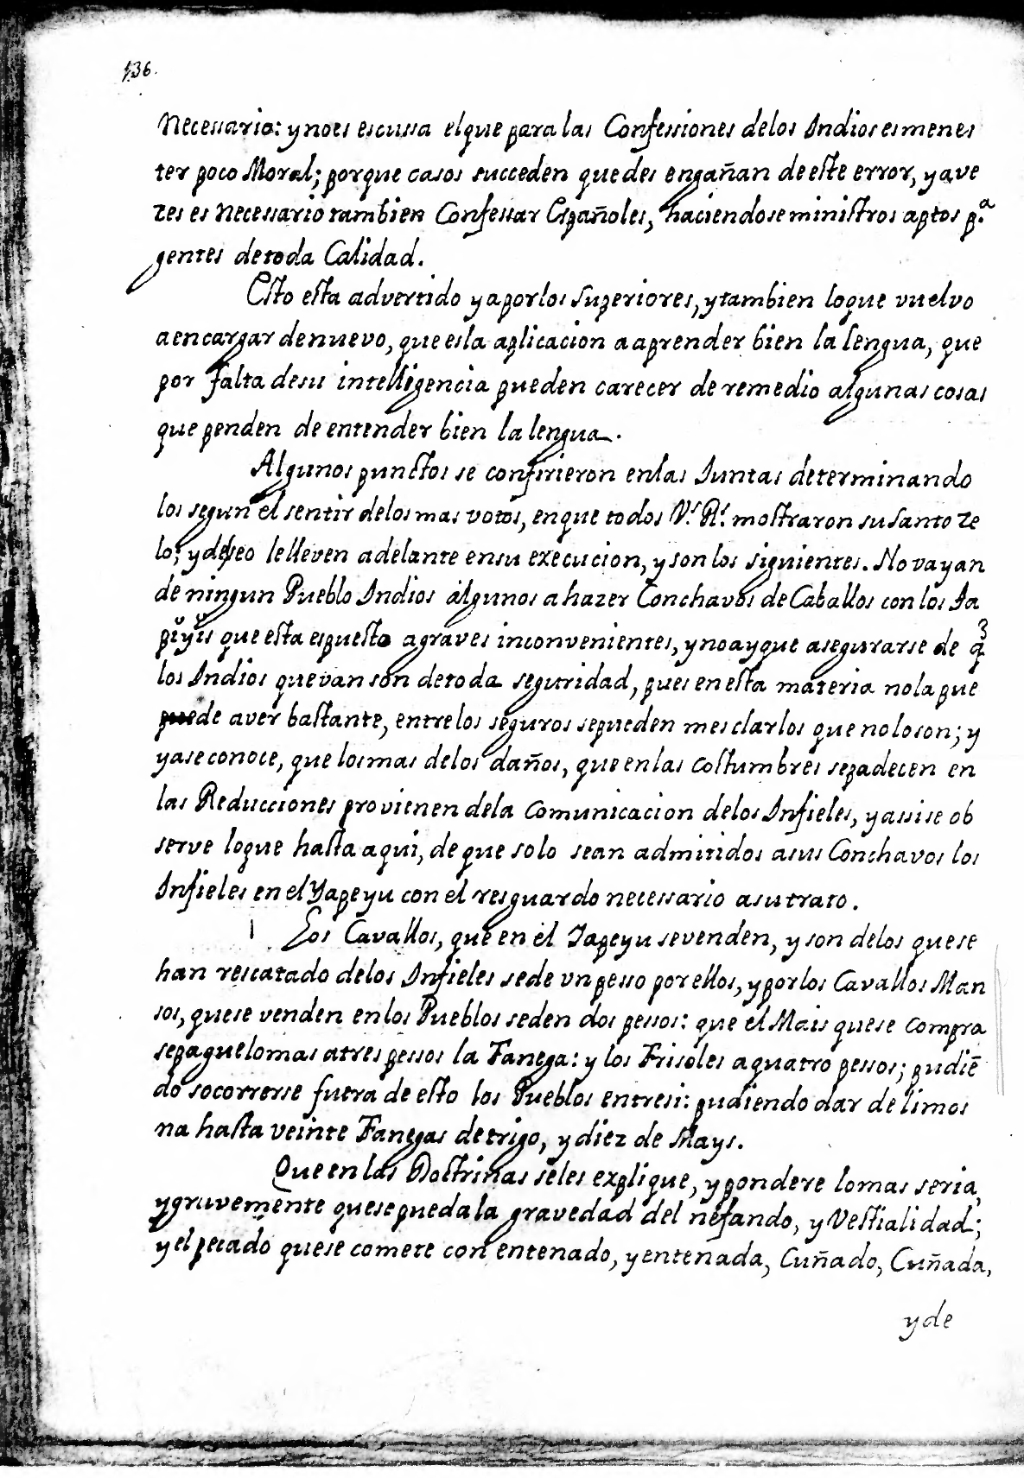 136.
Necessario: y no es escussa el que para las Confessiones de los Indios es menes
ter poco Moral; porque casos succeden que des engañan de este error, y a ve
zes es Necessario tambien Confessar Españoles, haciendose ministros aptos p.ª
gentes de toda Calidad.
Esto esta advertido ya por los Superiores, y tambien lo que vuelvo
a encargar de nuevo, que es la aplicacion a aprender bien la lengua, que
por falta de su intelligencia pueden carecer de remedio algunas cosas
que penden de entender bien la lengua.
Algunos punctos se confirieron en las Juntas determinando
los segun el sentir de los mas votos, en que todos V.s R.s mostraron su santo ze
lo; y deseo le lleven adelante en su execucion, y son los siguientes. No vayan
de ningun Pueblo Indios algunos a hazer Conchavos de Caballos con los Ja
piỹús que esta espuesto a graves inconvenientes, y no ay que asegurarse de q̃
los Indios que van son de toda seguridad, pues en esta materia no la pue
de aver bastante, entre los seguros se pueden mesclar los que no lo son; y
ya se conoce, que los mas de los daños, que en las costumbres se padecen en
las Reducciones provienen de la comunicacion de los Infieles, y assi se ob
serve lo que hasta aqui, de que solo sean admitidos a sus Conchavos los
Infieles en el Yapeyu con el resguardo necessario a su trato.
Los Cavallos, que en el Yapeyu se venden, y son de los que se
han rescatado de los Infieles se de un pesso por ellos, y por los Cavallos Man
sos, que se venden en los Pueblos se den dos pessos: que el Mais que se compra
se pague lo mas a tres pessos la Fanega: y los Frisoles a quatro pessos; pudiē
do socorrerse fuera de esto los Pueblos entre si: pudiendo dar de limos
na hasta veinte Fanegas de trigo, y diez de Mays.
Que en las Doctrinas se les explique, y pondere lo mas seria,
y gravemente que se pueda la gravedad del nefando, y Vestialidad;
y el pecado que se comete con entenado, y entenada, Cuñado, Cuñada,
y de